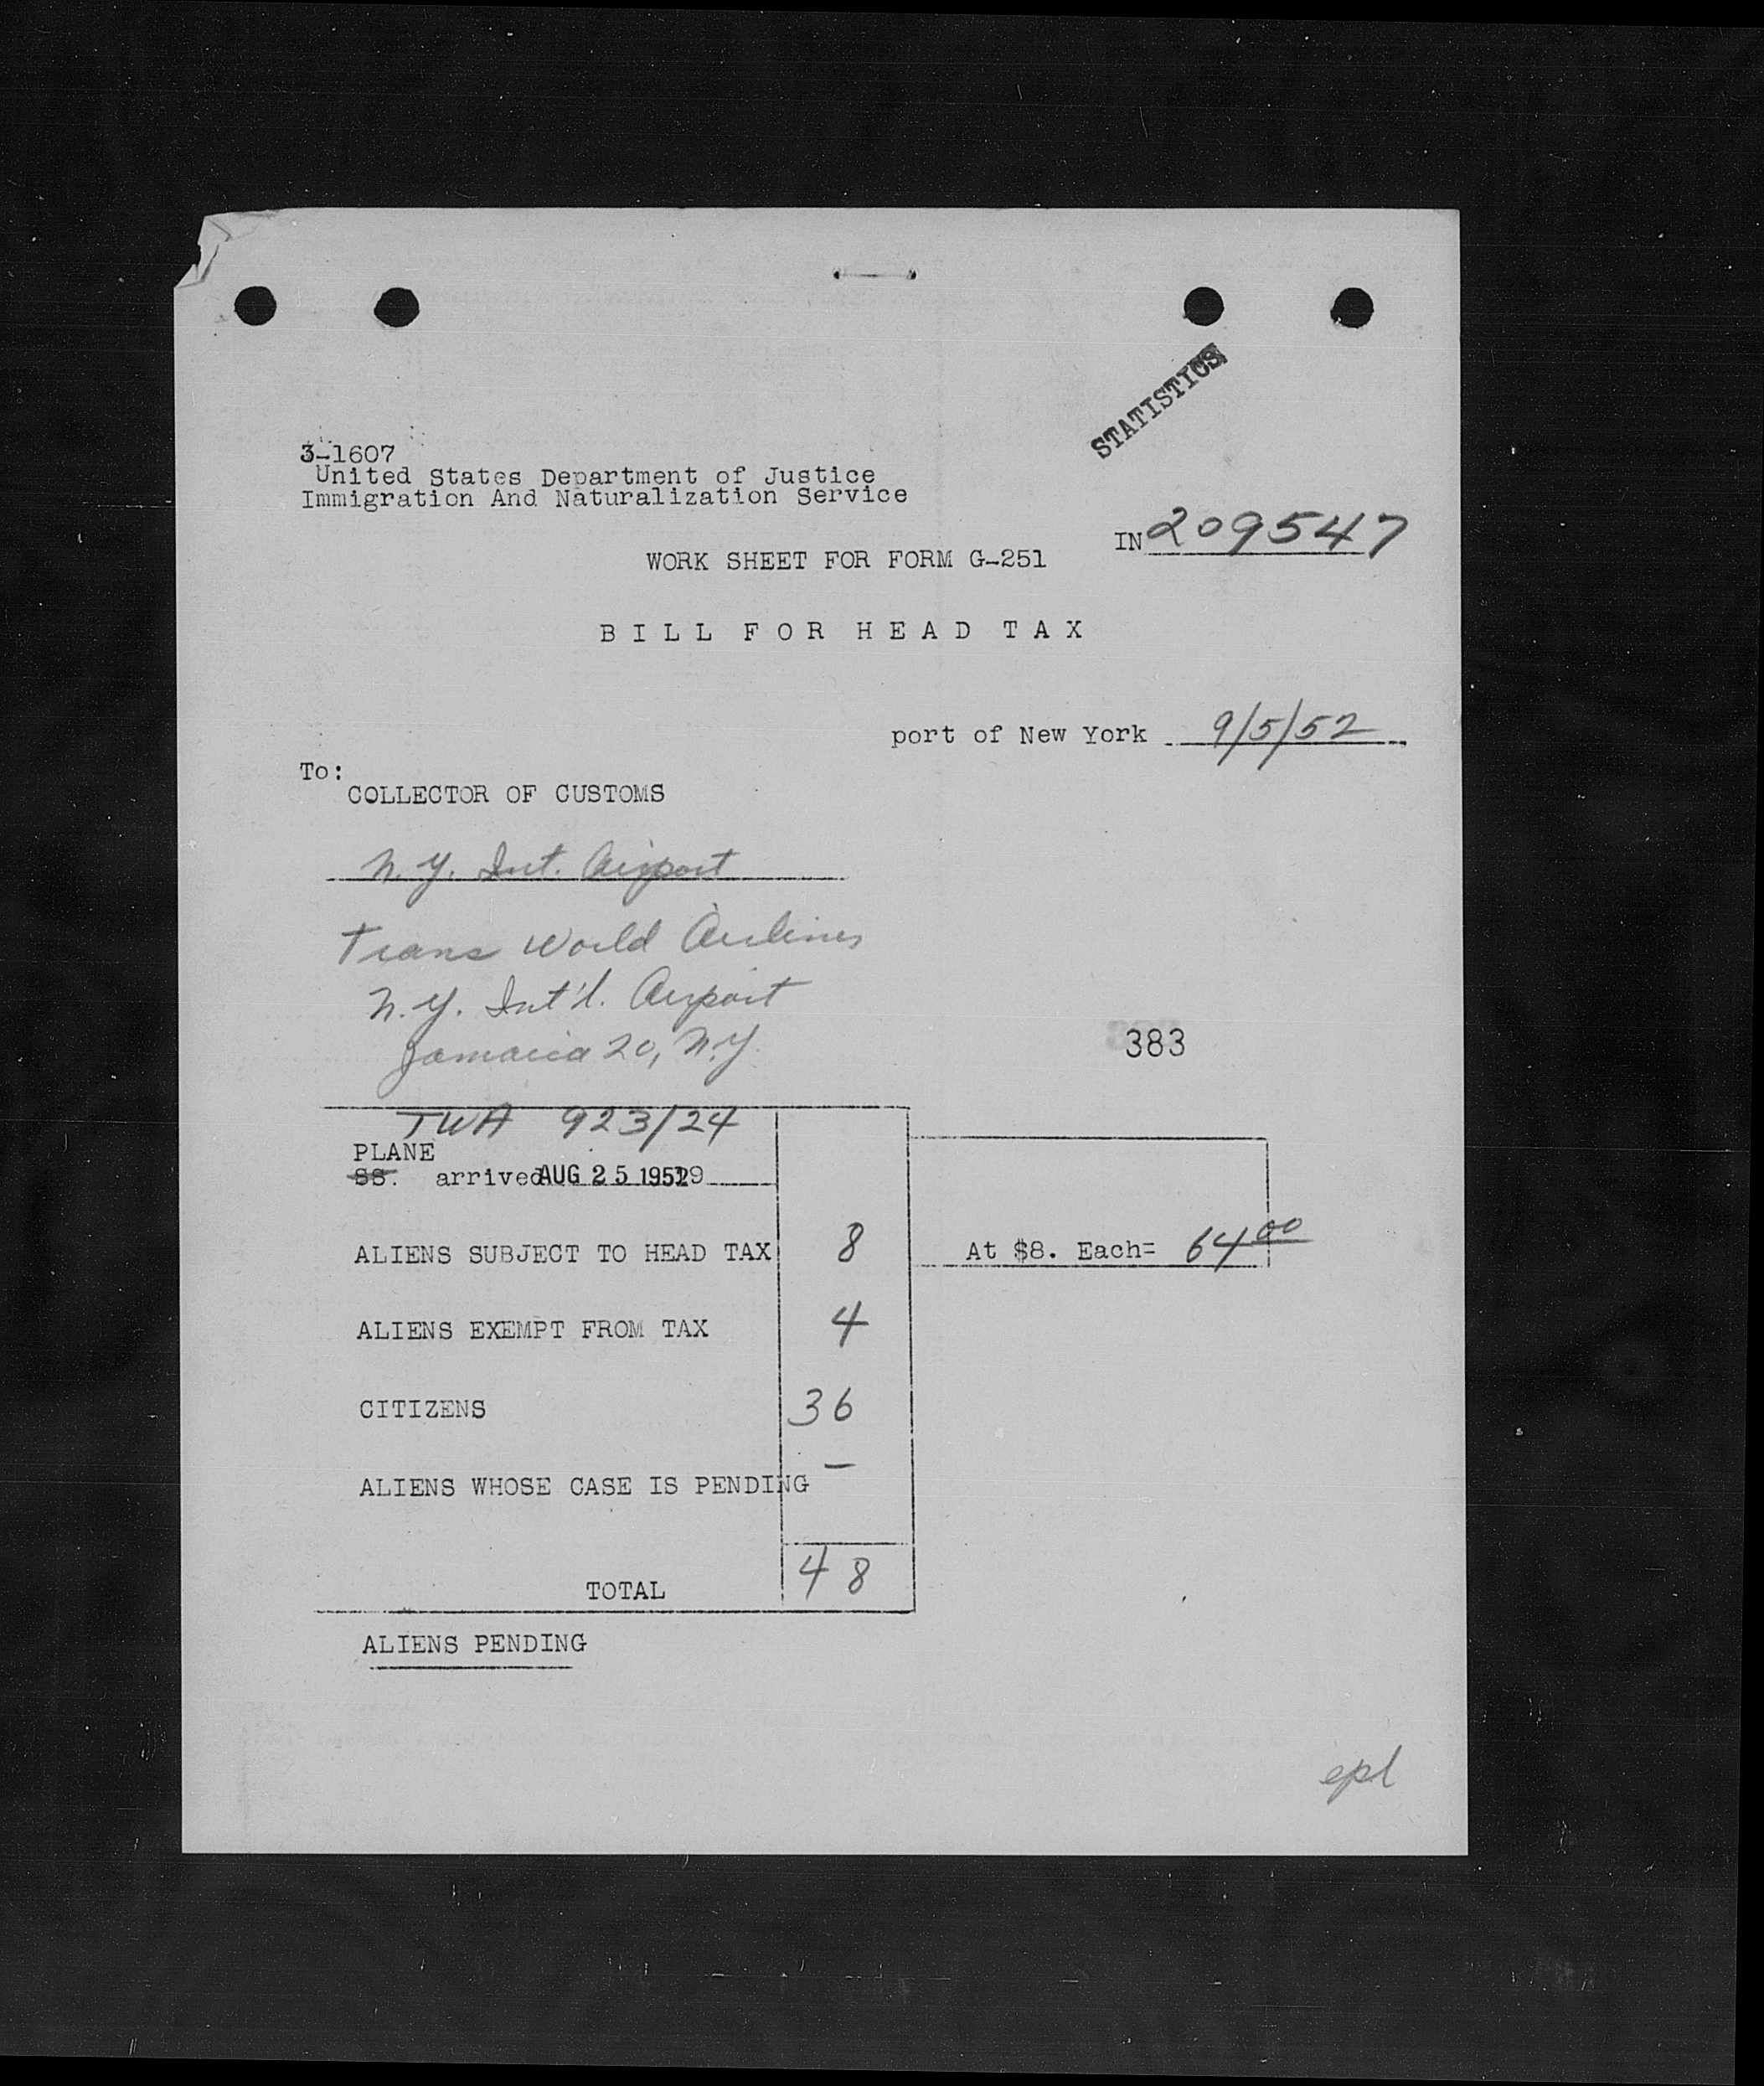 STATISTICS
3-1607
United States Department of Justice
Immigration And Naturalization Service
IN 209547
WORK SHEET FOR FORM G-251
BILL FOR HEAD TAX
port of New York 9/5/52
To:
COLLECTOR OF CUSTOMS
N.Y. Int. Airport
Trans World Airlines
N.Y. Int'l. Airport
Jamaica 20, N.Y.
383
TWA 923/24
PLANE
SS. arrived AUG 25 1952 19
ALIENS SUBJECT TO HEAD TAX 8 At $8. Each= 64 00
ALIENS EXEMPT FROM TAX 4
CITIZENS 36
ALIENS WHOSE CASE IS PENDING —
TOTAL 48
ALIENS PENDING
epl